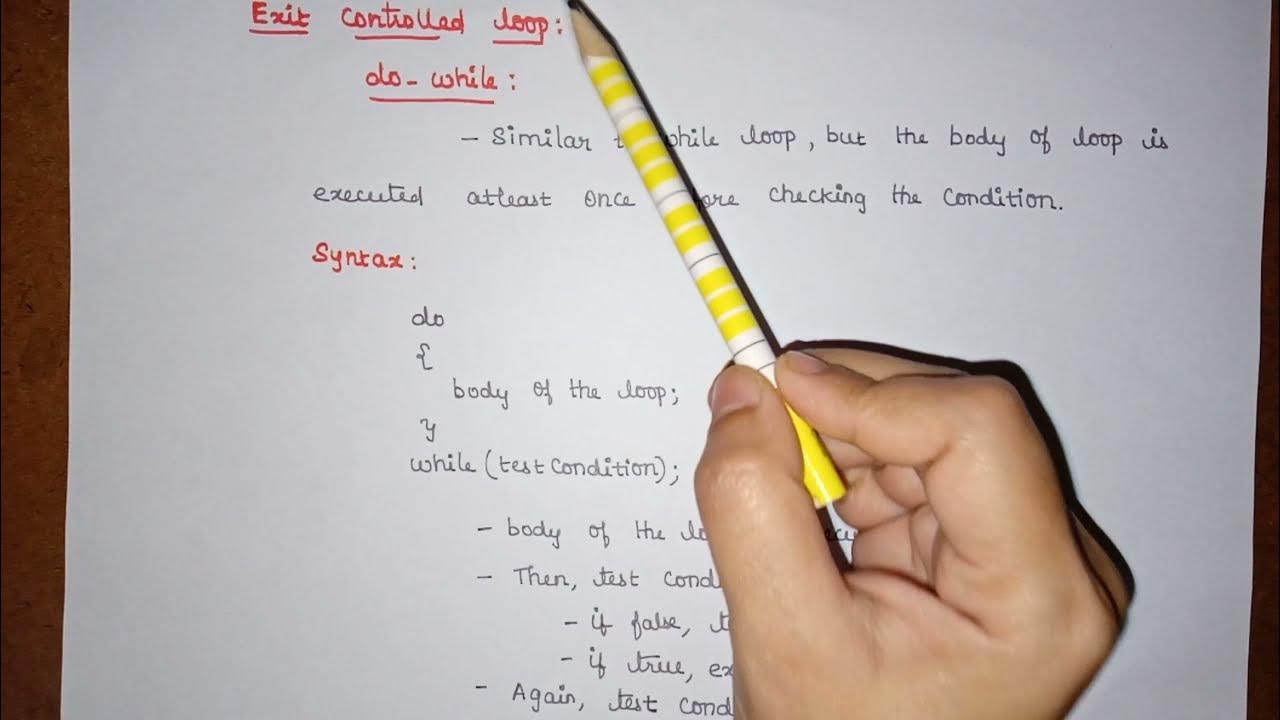 Exit controlled loop:
do-while:
- Similar while loop, but the body of loop is
executed atleast once checking the condition.
Syntax:
do
{
body of the loop;
}
while (test condition);
- body of the
- Then, test
- if false,
- if true,
- Again, test